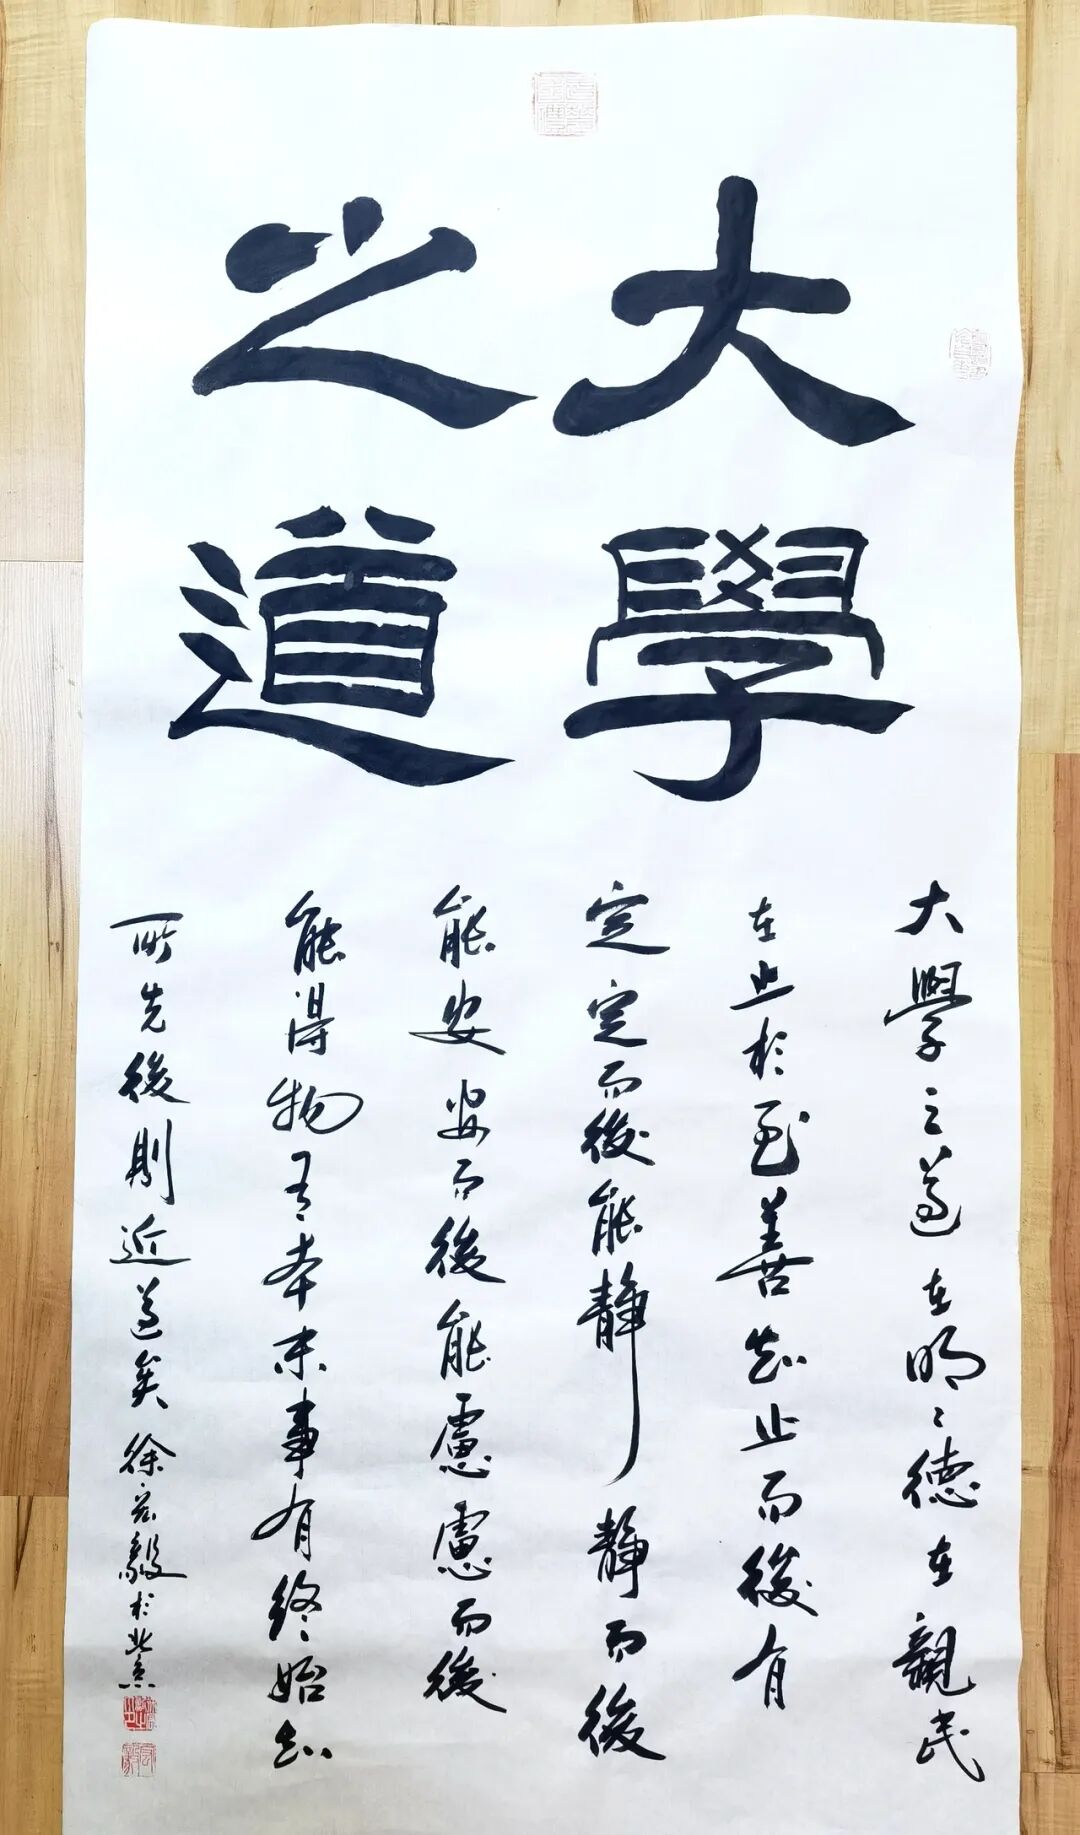 大學
之道
大學之道在明明德在親民
在止於至善知止而後有
定定而後能靜靜而後
能安安而後能慮慮而後
能得物有本末事有終始知
所先後則近道矣徐宏毅於北京